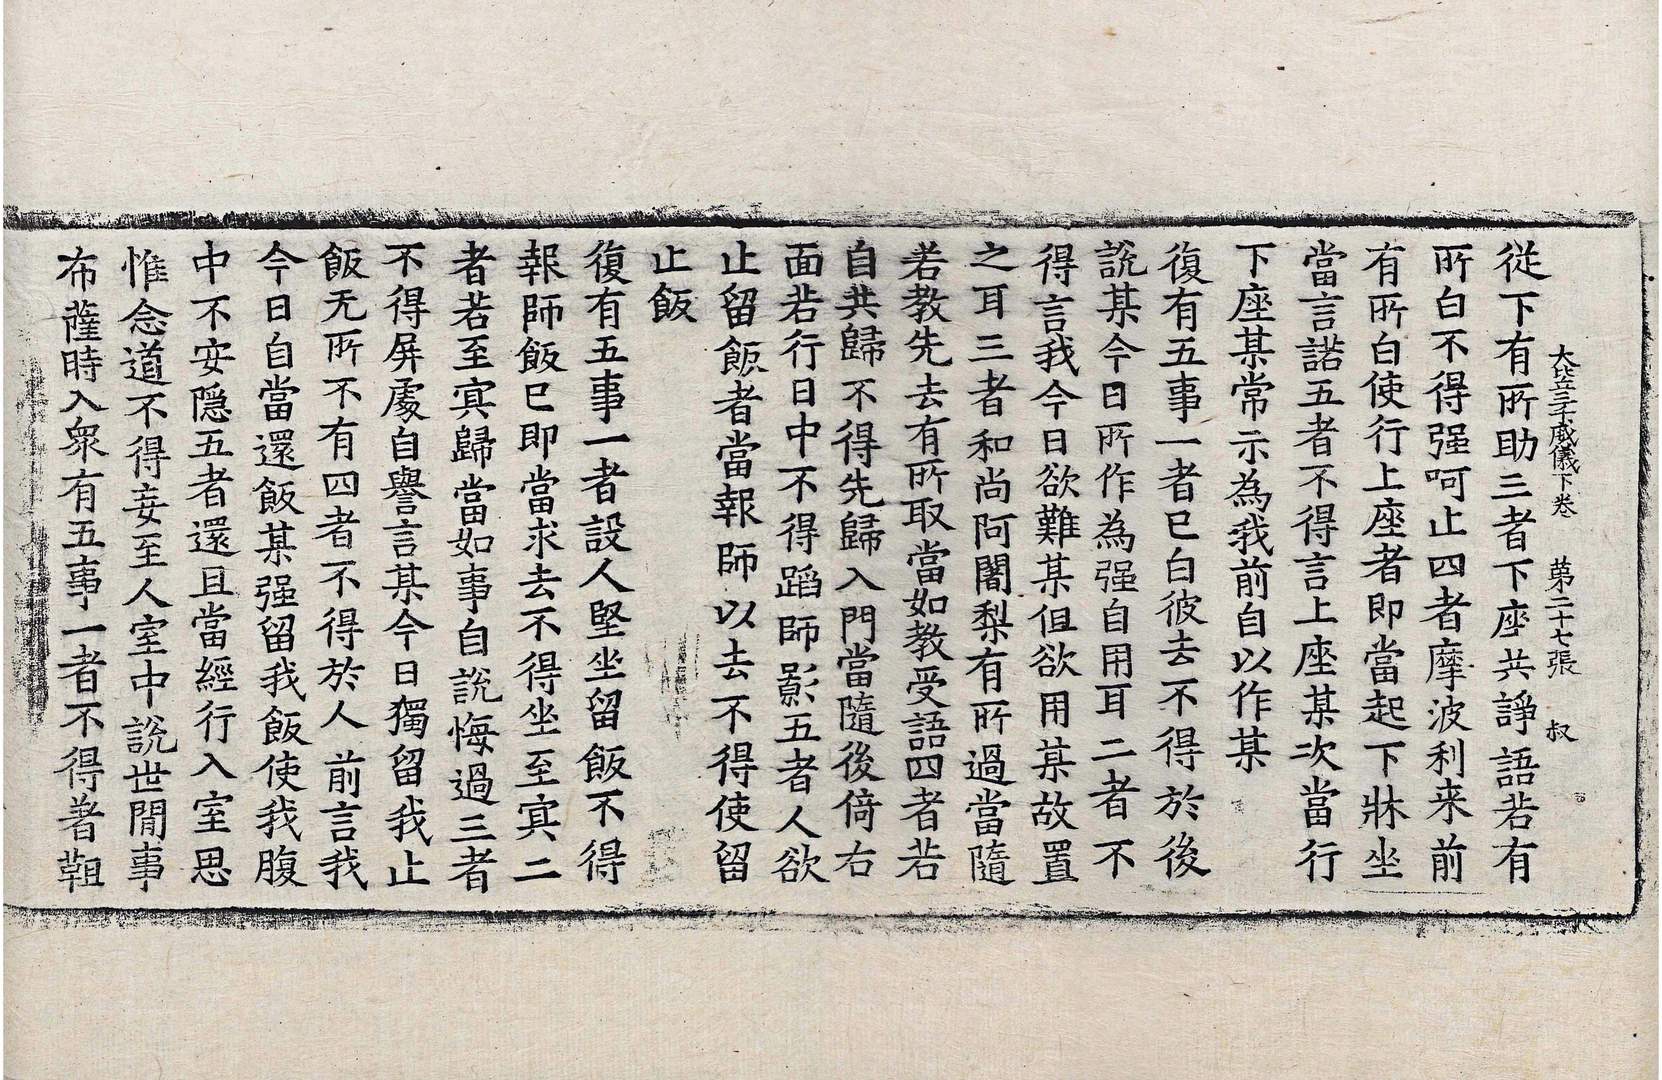 大比丘三千威儀下卷　第二十七張　叔
從下有所助三者下座共諍語若有
所白不得强呵止四者摩波利来前
有所白使行上座者即當起下牀坐
當言諾五者不得言上座某次當行
下座某常示為我前自以作某
復有五事一者已白彼去不得於後
說某今日所作為强自用耳二者不
得言我今日欲難某但欲用某故置
之耳三者和尚阿闍梨有所過當隨
若教先去有所取當如教受語四者若
自共歸不得先歸入門當隨後倚右
面若行日中不得蹈師影五者人欲
止留飯者當報師以去不得使留
止飯
復有五事一者設人堅坐留飯不得
報師飯已即當求去不得坐至㝠二
者若至㝠歸當如事自說悔過三者
不得屏處自譽言某今日獨留我止
飯无所不有四者不得於人前言我
今日自當還飯某强留我飯使我腹
中不安隱五者還且當經行入室思
惟念道不得妄至人室中說世閒事
布薩時入衆有五事一者不得著靻